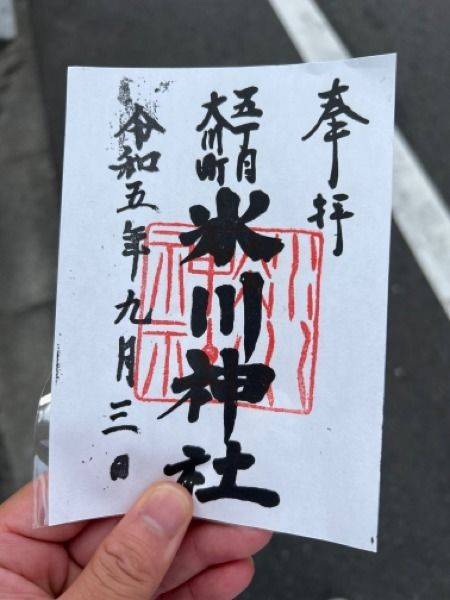 奉拝
五丁目
大川町
氷川神社
令和五年九月三日